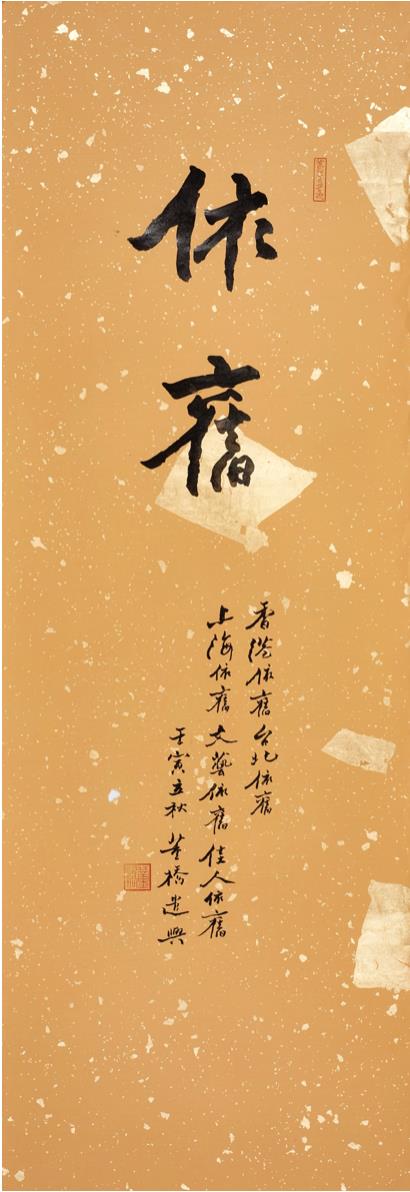 依舊
香港依舊台北依舊
上海依舊文藝依舊佳人依舊
壬寅立秋 董橋遣興